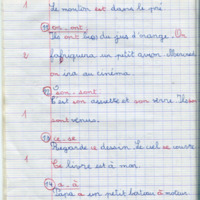 1 Le mouton est dans le pré
11 on - ont
2 Ils ont bu du jus d'orange. On
fabriquera un petit avion. Mercredi
on ira au cinéma
12 son - sont
1 C'est son assiette et son verre. Ils sont
sont venus.
13 ce - se
Regarde ce dessin. Le ciel se couvre
1 Ce livre est à moi
14 a - à
Papa a son petit bateau à moteur